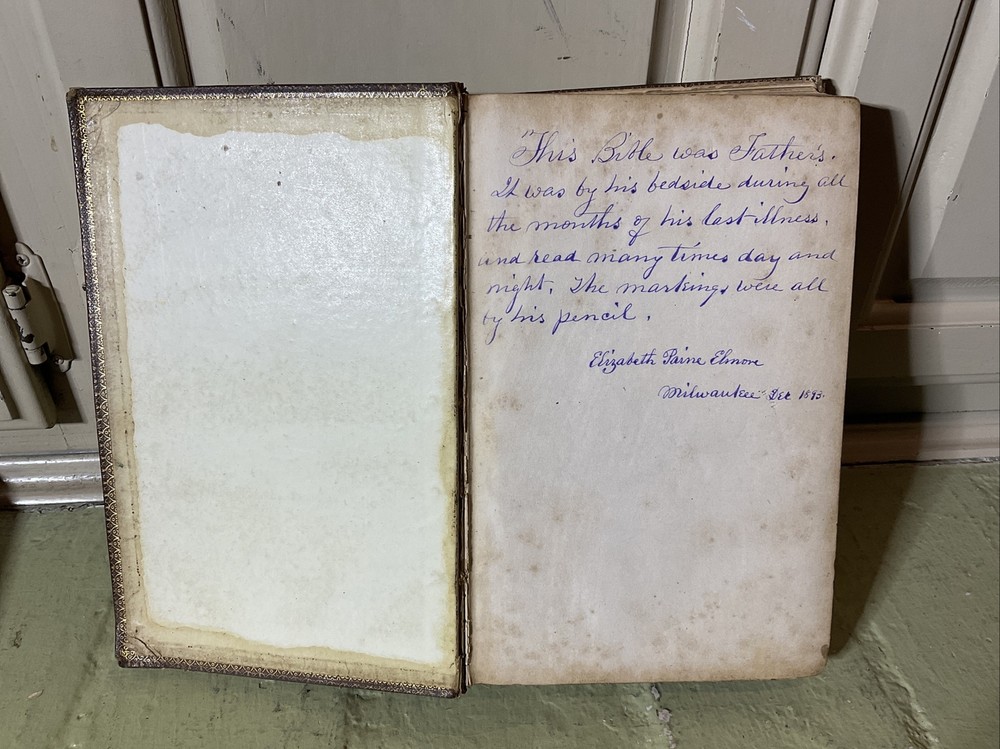 "This Bible was Father's.
It was by his bedside during all
the months of his last illness,
and read many times day and
night. The markings were all
by his pencil.
Elizabeth Paine Elmore
Milwaukee Dec 1893.